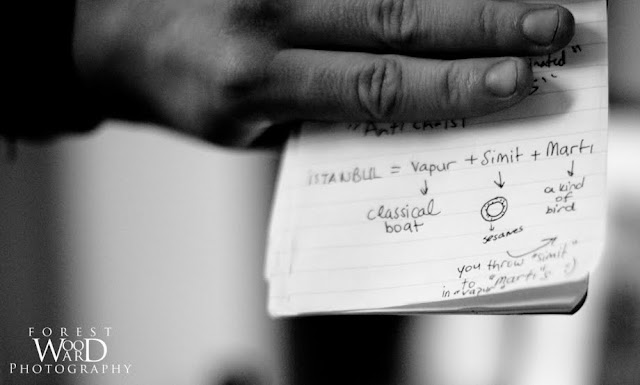 "Antichrist
İSTANBUL = vapur + Simit + Martı
classical
boat
sesames
a kind
of
bird
you throw "simit"
to "martı"s :)
in "vapur"
FOREST
WOODWARD
PHOTOGRAPHY